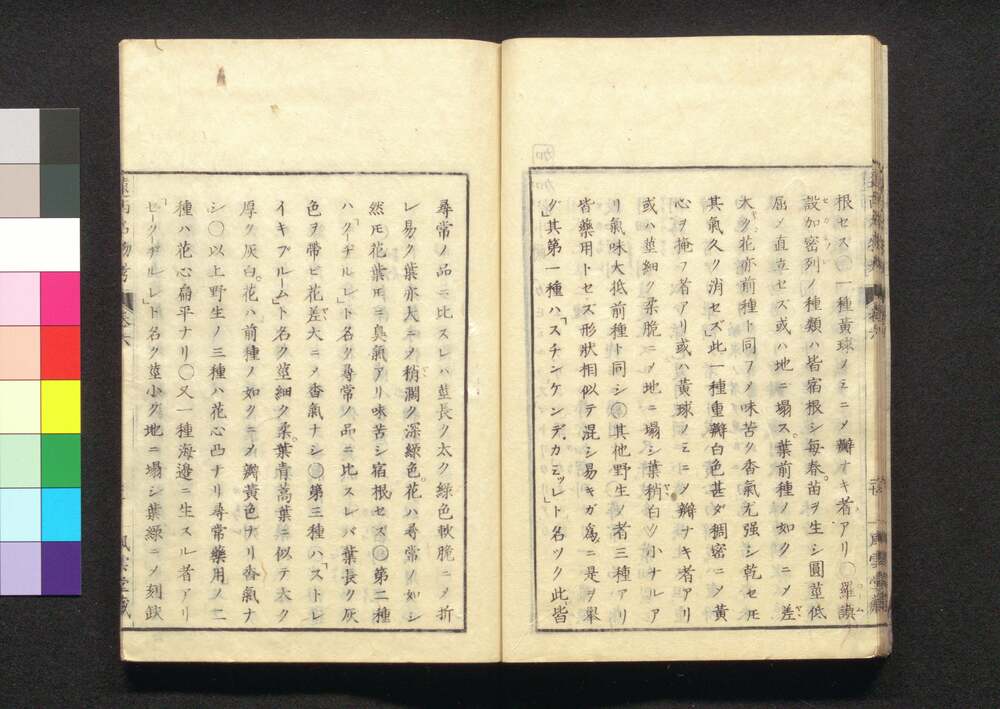 根セス○一種黄球ノミニ〆瓣ナキ者アリ○羅謨
設加密列ノ種類ハ皆宿根シ毎春苗ヲ生シ圓莖低
屈〆直立セズ或ハ地ニ塌ス葉前種ノ如クニ〆差
大ク花亦前種ト同フ〆味苦ク香氣尤强シ乾セモ
其氣久ク消セズ此一種重瓣白色甚ダ稠密ニ〆黄
心ヲ掩フ者アリ或ハ黄球ノミニ〆瓣ナキ者アリ
或ハ莖細ク柔脆ニ〆地ニ塌シ葉稍白ク小ナルア
リ氣味大抵前種ト同シ○其他野生ノ者三種アリ
皆藥用トセズ形狀相似テ混シ易キガ爲ニ是ヲ擧
グ其第一種ハ「スチンケンデ、カミッレ」ト名ツク此皆
尋常ノ品ニ比スレハ莖長ク太ク綠色軟脆ニ〆折
レ易ク葉亦大ニ〆稍濶ク深綠色花ハ尋常ノ如シ
然モ花葉モニ臭氣アリ味苦シ宿根セズ○第二種
ハ「クヂルレ」ト名ク尋常ノ品ニ比スレバ葉長ク灰
色ヲ帯ビ花差大ニ〆香氣ナシ○第三種ハ「ストレ
イキブルーム」ト名ク莖細ク柔葉青蒿葉ニ似テ大ク
厚ク灰白花ハ前種ノ如クニ〆瓣黄色ナリ香氣ナ
シ○以上野生ノ三種ハ花心凸ナリ尋常藥用ノ二
種ハ花心扁平ナリ○又一種海邉ニ生スル者アリ
「セークヂルレ」ト名ク莖小ク地ニ塌シ葉綠ニ〆刻缺